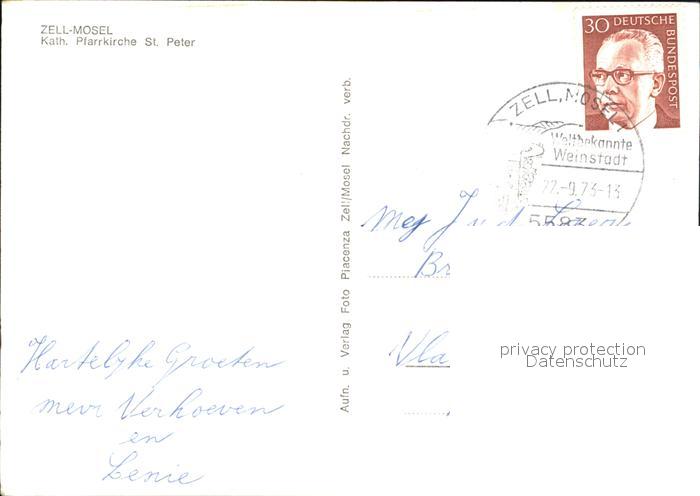 ZELL-MOSEL
Kath. Pfarrkirche St. Peter
30 DEUTSCHE BUNDESPOST
ZELL, MOSEL
Weltbekannte
Weinstadt
22.-9.73-13
5583
Aufn. u. Verlag Foto Piacenza Zell/Mosel Nachdr. verb.
Mej
Br
Vla
privacy protection
Datenschutz
Hartelijke Groeten
mevr Verhoeven
en
Lenie